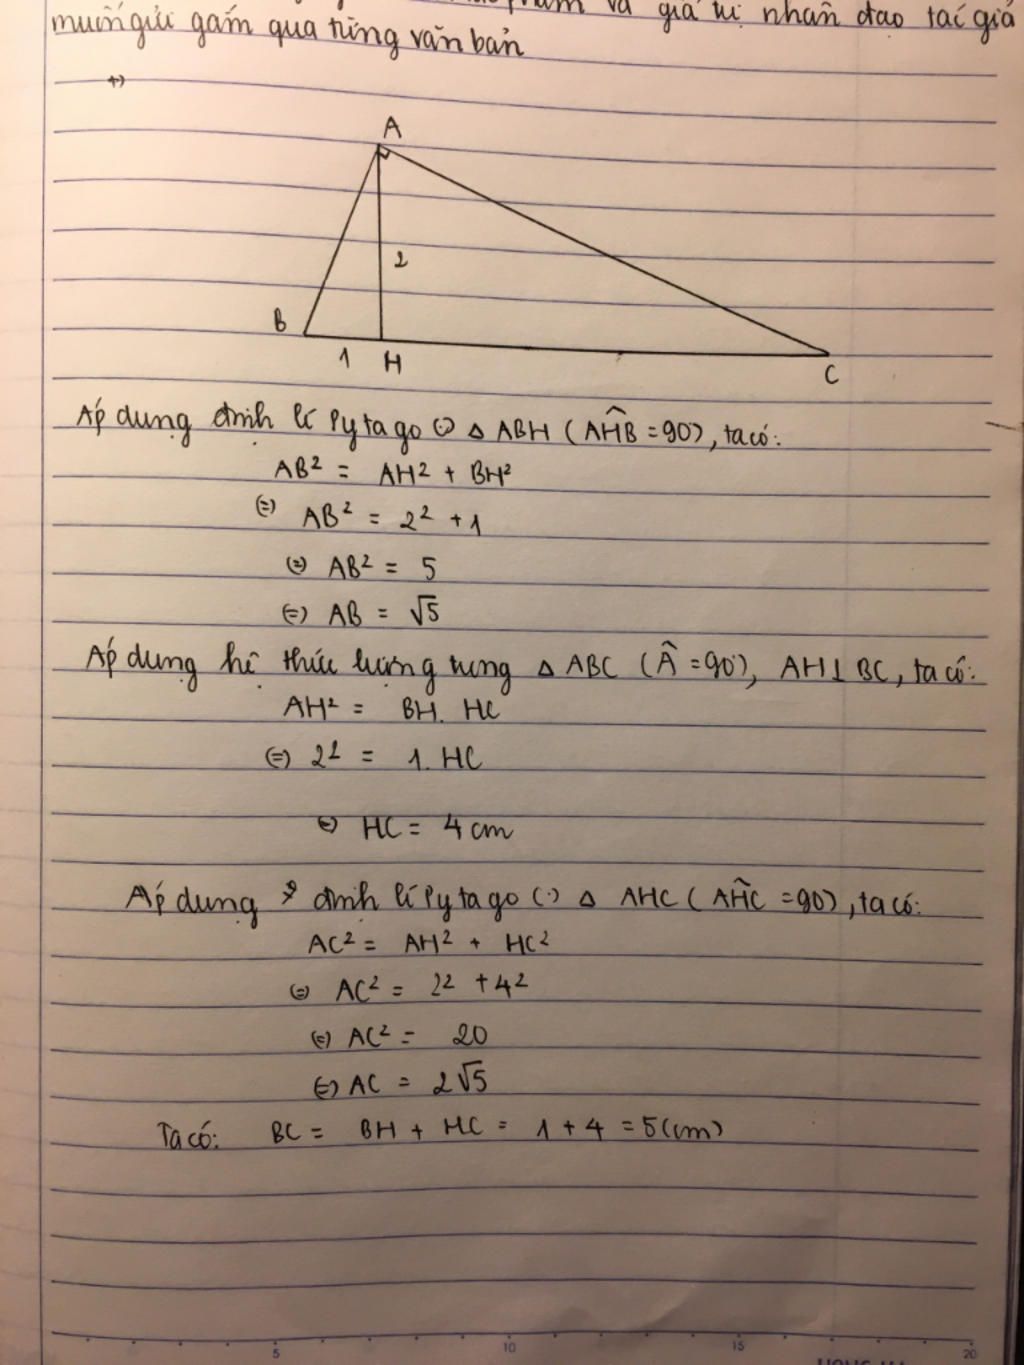 và giá trị nhân đạo tác giả
muốn gửi gắm qua từng văn bản
+)
A
2
B
1 H
C
Áp dụng định lí Pytago (·) Δ ABH (AĤB = 90°), ta có:
AB² = AH² + BH²
(=) AB² = 2² + 1
(=) AB² = 5
(=) AB = √5
Áp dụng hệ thức lượng trong Δ ABC (Â = 90°), AH⊥BC, ta có:
AH² = BH. HC
(=) 2² = 1. HC
(=) HC = 4 cm
Áp dụng định lí Pytago (·) Δ AHC (AĤC = 90°), ta có:
AC² = AH² + HC²
(=) AC² = 2² + 4²
(=) AC² = 20
(=) AC = 2√5
Ta có: BC = BH + HC = 1 + 4 = 5(cm)
5 10 15 20